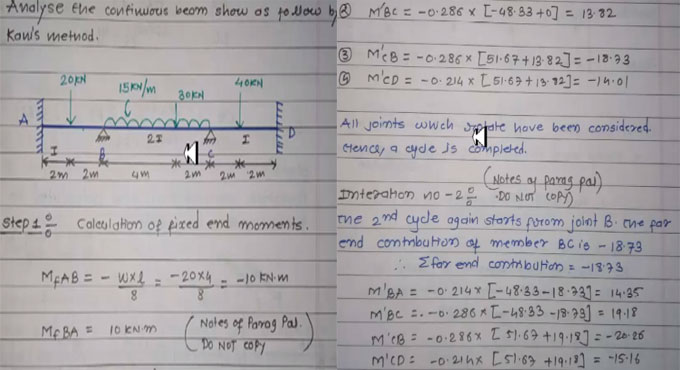 Analyse the continuous beam show as follow by
Kani's method.
20KN
15KN/m
30KN
40KN
A
D
2I
I
B
C
I
2m
2m
4m
2m
2m
2m
Step 1 % Calculation of fixed end moments.
MFAB = - W×l/8 = -20×4/8 = -10 KN.m
MFBA = 10 KN.m
(Notes of Parag Pal.
DO NOT COPY)
② M'BC = -0.286 × [-48.33+0] = 13.82
③ M'CB = -0.286 × [51.67+13.82] = -18.73
M'CD = -0.214 × [51.67+13.82] = -14.01
All joints which rotate have been considered.
Hence, a cycle is completed.
(Notes of parag pal)
Interation no -2 %
DO NOT COPY
The 2nd cycle again starts from joint B. the far
end contribution of member BC is -18.73
∴ Σ far end contribution = -18.73
M'BA = -0.214 × [-48.33-18.73] = 14.35
M'BC = -0.286 × [-48.33-18.73] = 19.18
M'CB = -0.286 × [51.67+19.18] = -20.26
M'CD = -0.214 × [51.67+19.18] = -15.16